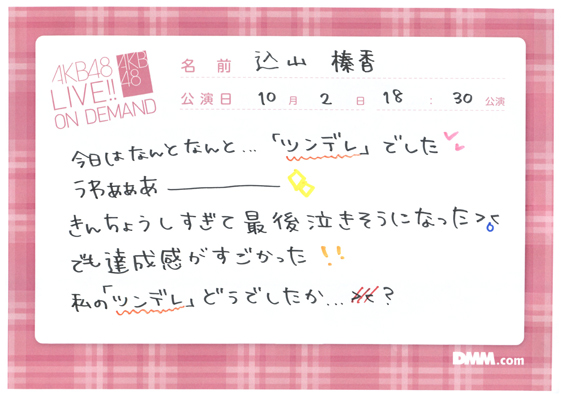 AKB48
LIVE!!
ON DEMAND
AKB
48
名前 込山 榛香
公演日 10月 2日 18:30公演
今日はなんとなんと…「ツンデレ」でした
うわぁぁあ―――
きんちょうしすぎて最後泣きそうになった><
でも達成感がすごかった!!
私の「ツンデレ」どうでしたか…?
DMM.com